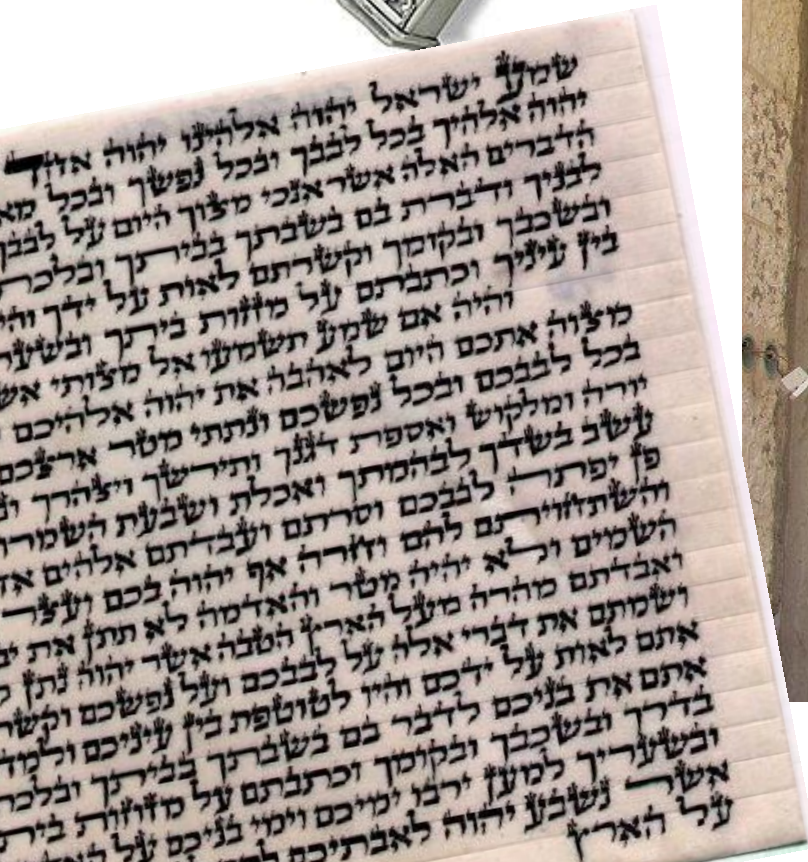 שמע ישראל יהוה אלהינו יהוה אחד
יהוה אלהיך בכל לבבך ובכל נפשך ובכל
הדברים האלה אשר אנכי מצוך היום על לבבך
לבניך ודברת בם בשבתך בביתך ובלכת
ובשכבך ובקומך וקשרתם לאות על ידך
בין עיניך וכתבתם על מזזות ביתך
והיה אם שמע תשמעו אל מצותי
מצוה אתכם היום לאהבה את יהוה אלהיכם
בכל לבבכם ובכל נפשכם ונתתי מטר ארצכם
יורה ומלקוש ואספת דגנך ותירשך ויצהרך
עשב בשדך לבהמתך ואכלת ושבעת השמרו
פן יפתה לבבכם וסרתם ועבדתם אלהים
והשתחויתם להם וחרה אף יהוה בכם ועצר
השמים ולא יהיה מטר והאדמה לא תתן את
ואבדתם מהרה מעל הארץ הטבה אשר יהוה נתן
ושמתם את דברי אלה על לבבכם ועל נפשכם
אתם לאות על ידכם והיו לטוטפת בין עיניכם
אתם את בניכם לדבר בם בשבתך בביתך ובלכת
בדרך ובשכבך ובקומך וכתבתם על מזוזות
ובשעריך למען ירבו ימיכם וימי בניכם על
אשר נשבע יהוה לאבתיכם
על הארץ